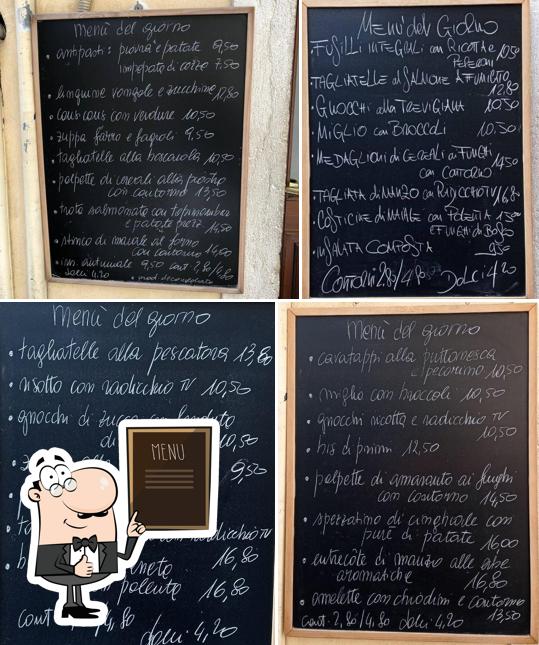 menù del giorno
antipasti: provola e patate 9,50
impepata di cozze 7.50
linguine vongole e zucchine 12,80
cous cous con verdure 10,50
zuppa farro e fagioli 9,50
tagliatelle alla boscaiola 10,50
polpette di cereali alla
con contorno 13,50
trota salmonata con topinambur
e patate 14,50
stinco di maiale al forno
con contorno 14,50
ins. autunnale 9,50 cont 2,80/4,80
dolci 4,20
Menù del Giorno
FUSILLI INTEGRALI con RICOTTA e 10,50
PEPERONI
TAGLIATELLE al SALMONE AFFUMICATO
12.80
GNOCCHI alla TREVIGIANA 10.50
MIGLIO con BROCCOLI 10.50
MEDAGLIONI di CEREALI ai FUNGHI
con CONTORNO 14,50
TAGLIATA di MANZO con RADICCHIO TV 16.80
COSTICINE di MAIALE con POLENTA
e FUNGHI
INSALATA COMPOSTA 9.50
Contorni 2.80/4.80 Dolci 4,20
Menù del giorno
tagliatelle alla pescatora 13,80
risotto con radicchio TV 10,50
gnocchi di zucca con fonduta
di 10,50
9,50
radicchio TV
16,80
polenta 16,80
cont 4,80
dolci 4,20
Menù del giorno
cavatappi alla puttanesca
e pecorino 10,50
miglio con broccoli 10,50
gnocchi ricotta e radicchio TV
10,50
bis di primi 12,50
polpette di amaranto ai funghi
con contorno 14,50
spezzatino di cinghiale con
purè di patate 16,00
entrecôte di manzo alle erbe
aromatiche 16,80
omelette con chiodini e contorno
13,50
cont. 2,80/4,80 dolci 4,20
MENU